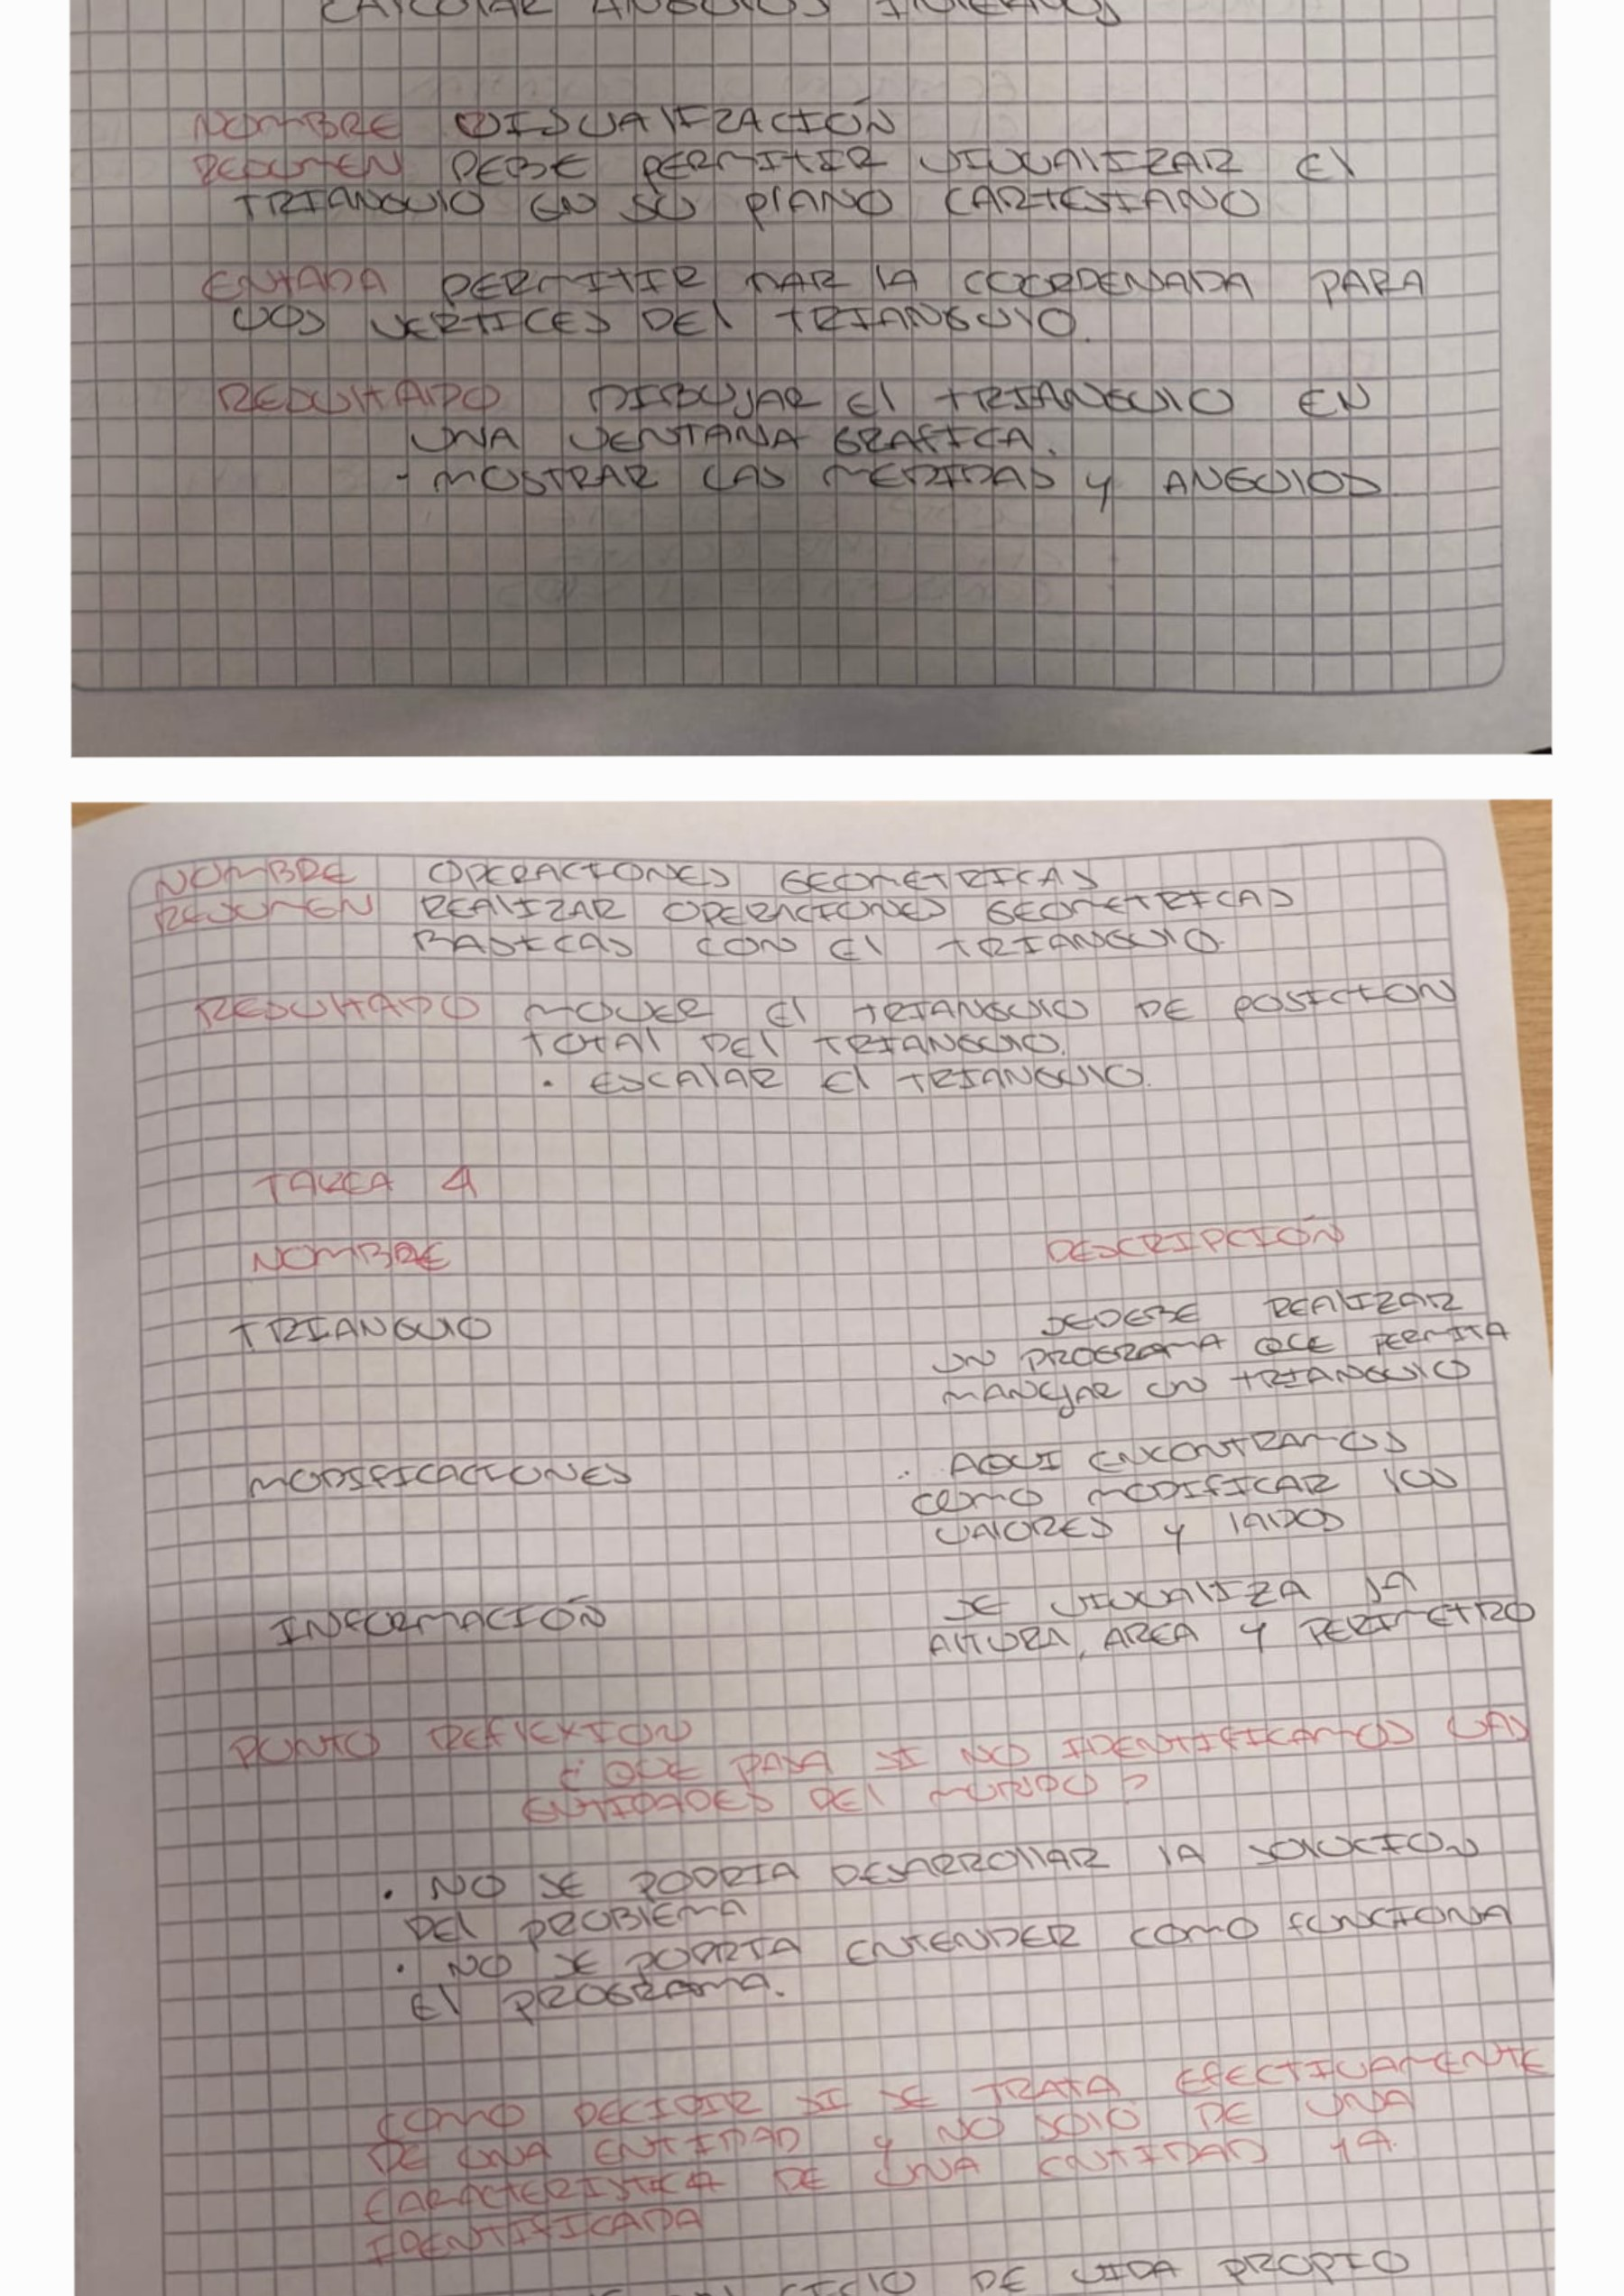 CALCULAR ANGULOS INTERNOS
NOMBRE VISUALIZACIÓN
RESUMEN DEBE PERMITIR VISUALIZAR El
TRIANGULO EN SU PLANO CARTESIANO
ENTADA PERMITIR DAR LA COORDENADA PARA
LOS VERTICES DEL TRIANGULO.
RESULTADO DIBUJAR El TRIANGULO EN
UNA VENTANA GRAFICA.
- MOSTRAR LAS MEDIDAS y ANGULOS
NOMBRE OPERACIONES GEOMETRICAS
RESUMEN REALIZAR OPERACIONES GEOMETRICAS
BASICAS CON El TRIANGULO.
RESULTADO MOVER El TRIANGULO DE POSICION
TOTAL DEL TRIANGULO.
• ESCALAR El TRIANGULO.
TAREA 4
NOMBRE DESCRIPCIÓN
TRIANGULO SEDEBE REALIZAR
UN PROGRAMA QUE PERMITA
MANEJAR UN TRIANGULO
MODIFICACIONES . AQUI ENCONTRAMOS
COMO MODIFICAR LOS
VALORES y LADOS
INFORMACIÓN SE VISUALIZA LA
ALTURA, AREA y PERIMETRO
PUNTO REFLEXION
¿QUE PASA SI NO IDENTIFICAMOS LAS
ENTIDADES DEL MUNDO?
• NO SE PODRIA DESARROLLAR LA SOLUCION
DEL PROBLEMA
• NO SE PODRIA ENTENDER COMO FUNCIONA
El PROGRAMA.
COMO DECIDIR SI SE TRATA EFECTIVAMENTE
DE UNA ENTIDAD y NO SOLO DE UNA
CARACTERISTICA DE UNA ENTIDAD YA
IDENTIFICADA
CICLO DE VIDA PROPIO